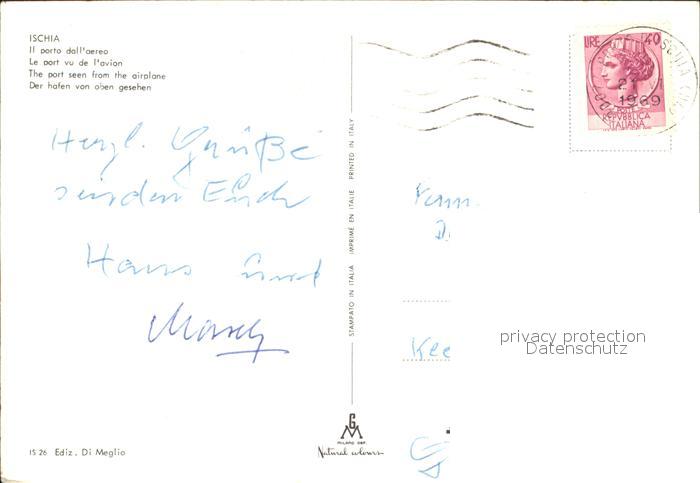 ISCHIA
Il porto dall'aereo
Le port vu de l'avion
The port seen from the airplane
Der hafen von oben gesehen
LIRE 40
1969
POSTE
REPVBBLICA
ITALIANA
Herzl. Grüße
senden Euch
Hans und
Fam.
privacy protection
Datenschutz
STAMPATO IN ITALIA IMPRIMÉ EN ITALIE PRINTED IN ITALY
GM
MILANO DEP.
Natural colours
IS 26 Ediz. Di Meglio